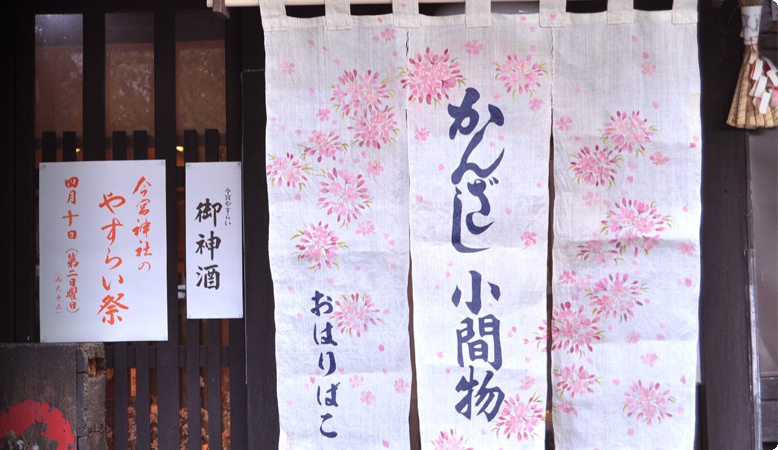 今宮神社の
やすらい祭
四月十日(第二日曜日)
(雨天中止)
今宮やすらい
御神酒
かんざし 小間物
おはりばこ